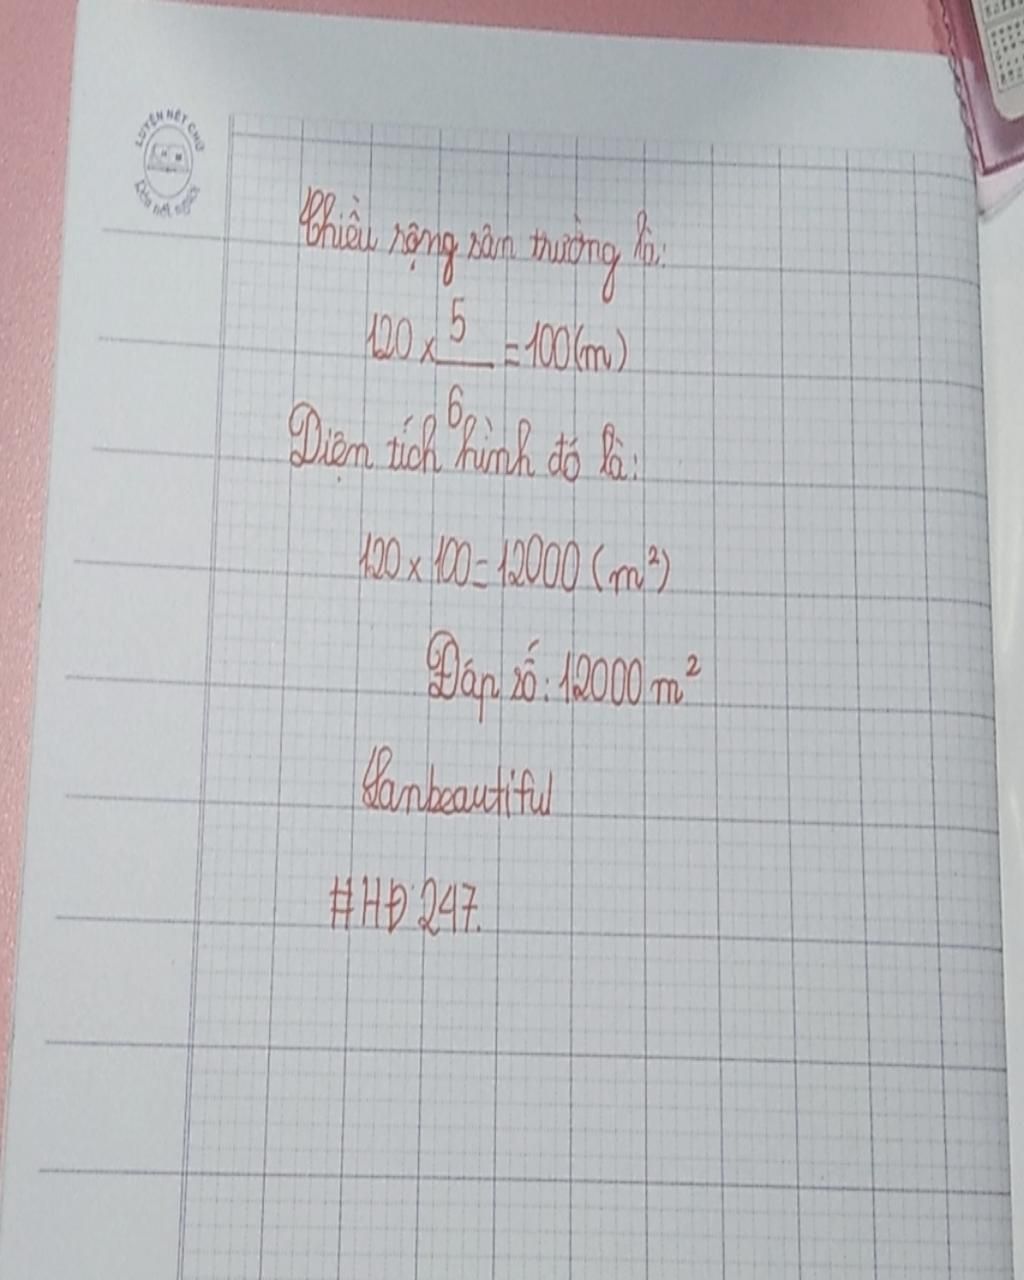 LUYỆN NÉT CHỮ
RÈN NẾT NGƯỜI
Chiều rộng sân trường là:
120 x 5/6 = 100(m)
Diện tích hình đó là:
120 x 100 = 12000 (m²)
Đáp số: 12000 m²
Lanbeautiful
#HĐ 247.